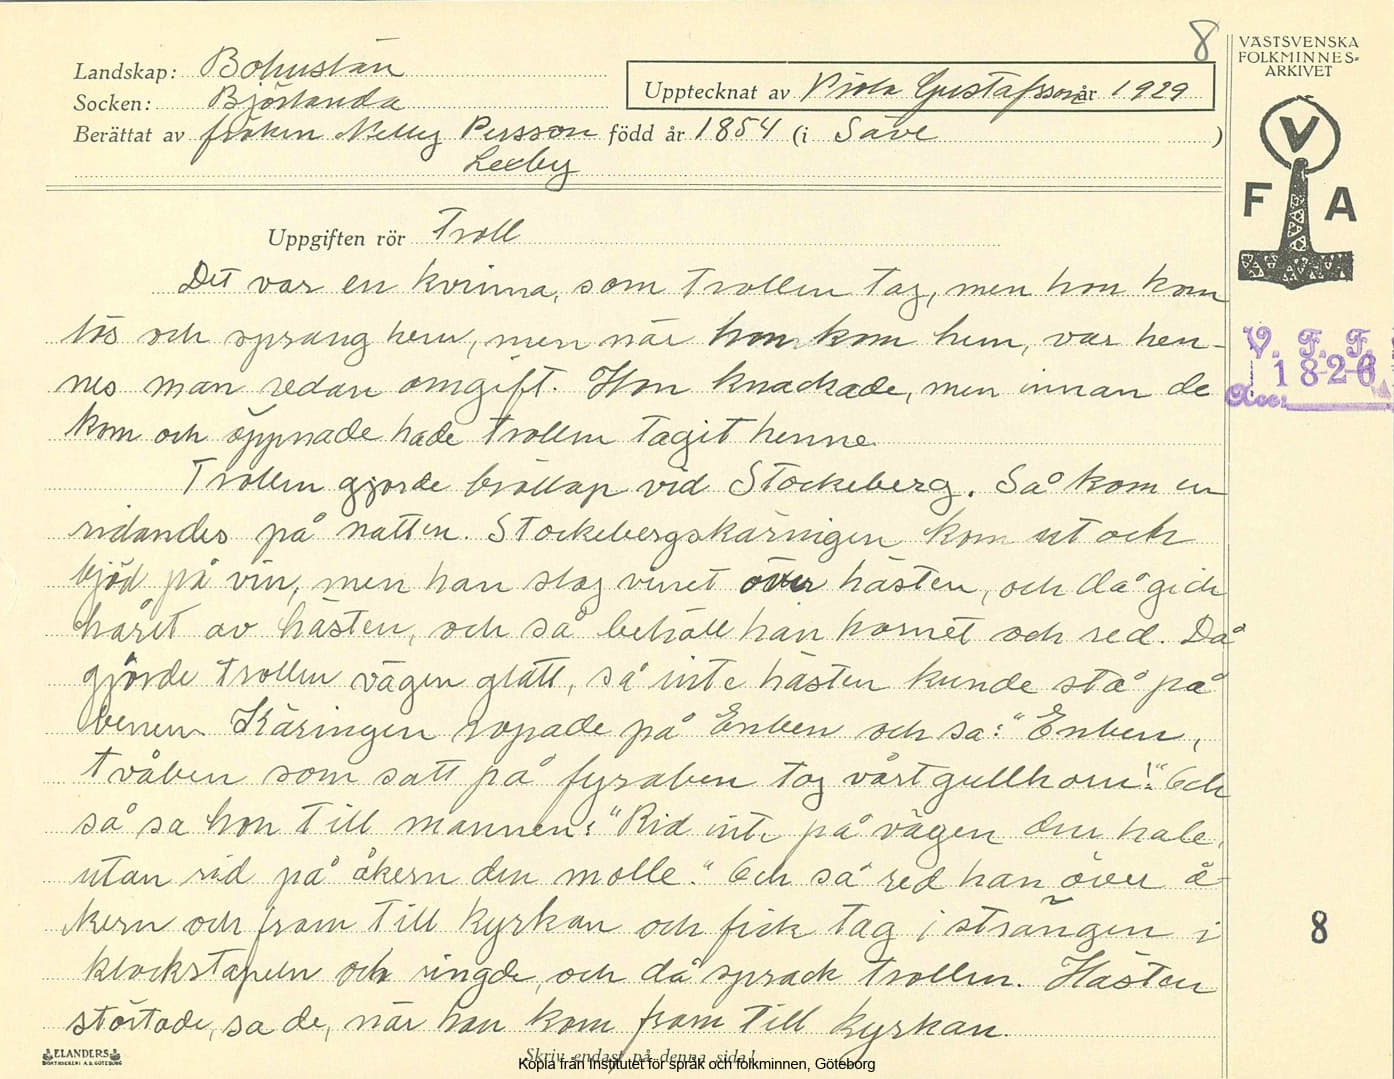 8
VÄSTSVENSKA
FOLKMINNES-
ARKIVET
V
F A
Landskap: Bohuslän
Socken: Björlanda
Upptecknat av Viola Gustafsson år 1929
Berättat av fröken Nelly Persson född år 1854 (i Säve )
Lexby
Uppgiften rör Troll
Det var en kvinna, som trollen tag, men hon kom
lös och sprang hem, men när hon kom hem, var hen-
nes man redan omgift. Hon knackade, men innan de
kom och öppnade hade trollen tagit henne.
Trollen gjorde bröllop vid Stockeberg. Så kom en
ridandes på natten. Stockebergskäringen kom ut och
bjöd på vin, men han slog vinet över hästen, och då gick
håret av hästen, och så behöll han hornet och red. Då
gjorde trollen vägen glatt, så inte hästen kunde stå på
benen. Käringen ropade på Enben och sa: "Enben,
tvåben som satt på fyraben tog vårt gullhorn!" Och
så sa hon till mannen: "Rid inte på vägen den hale,
utan rid på åkern den molle." Och så red han över å-
kern och fram till kyrkan och fick tag i strängen i
klockstapeln och ringde, och då sprack trollen. Hästen
störtade, sa de, när han kom fram till kyrkan.
V. F. F.
1826
Acc.
8
ELANDERS
BOKTRYCKERI A.B. GÖTEBORG
Skriv endast på denna sida!
Kopia från Institutet för språk och folkminnen, Göteborg